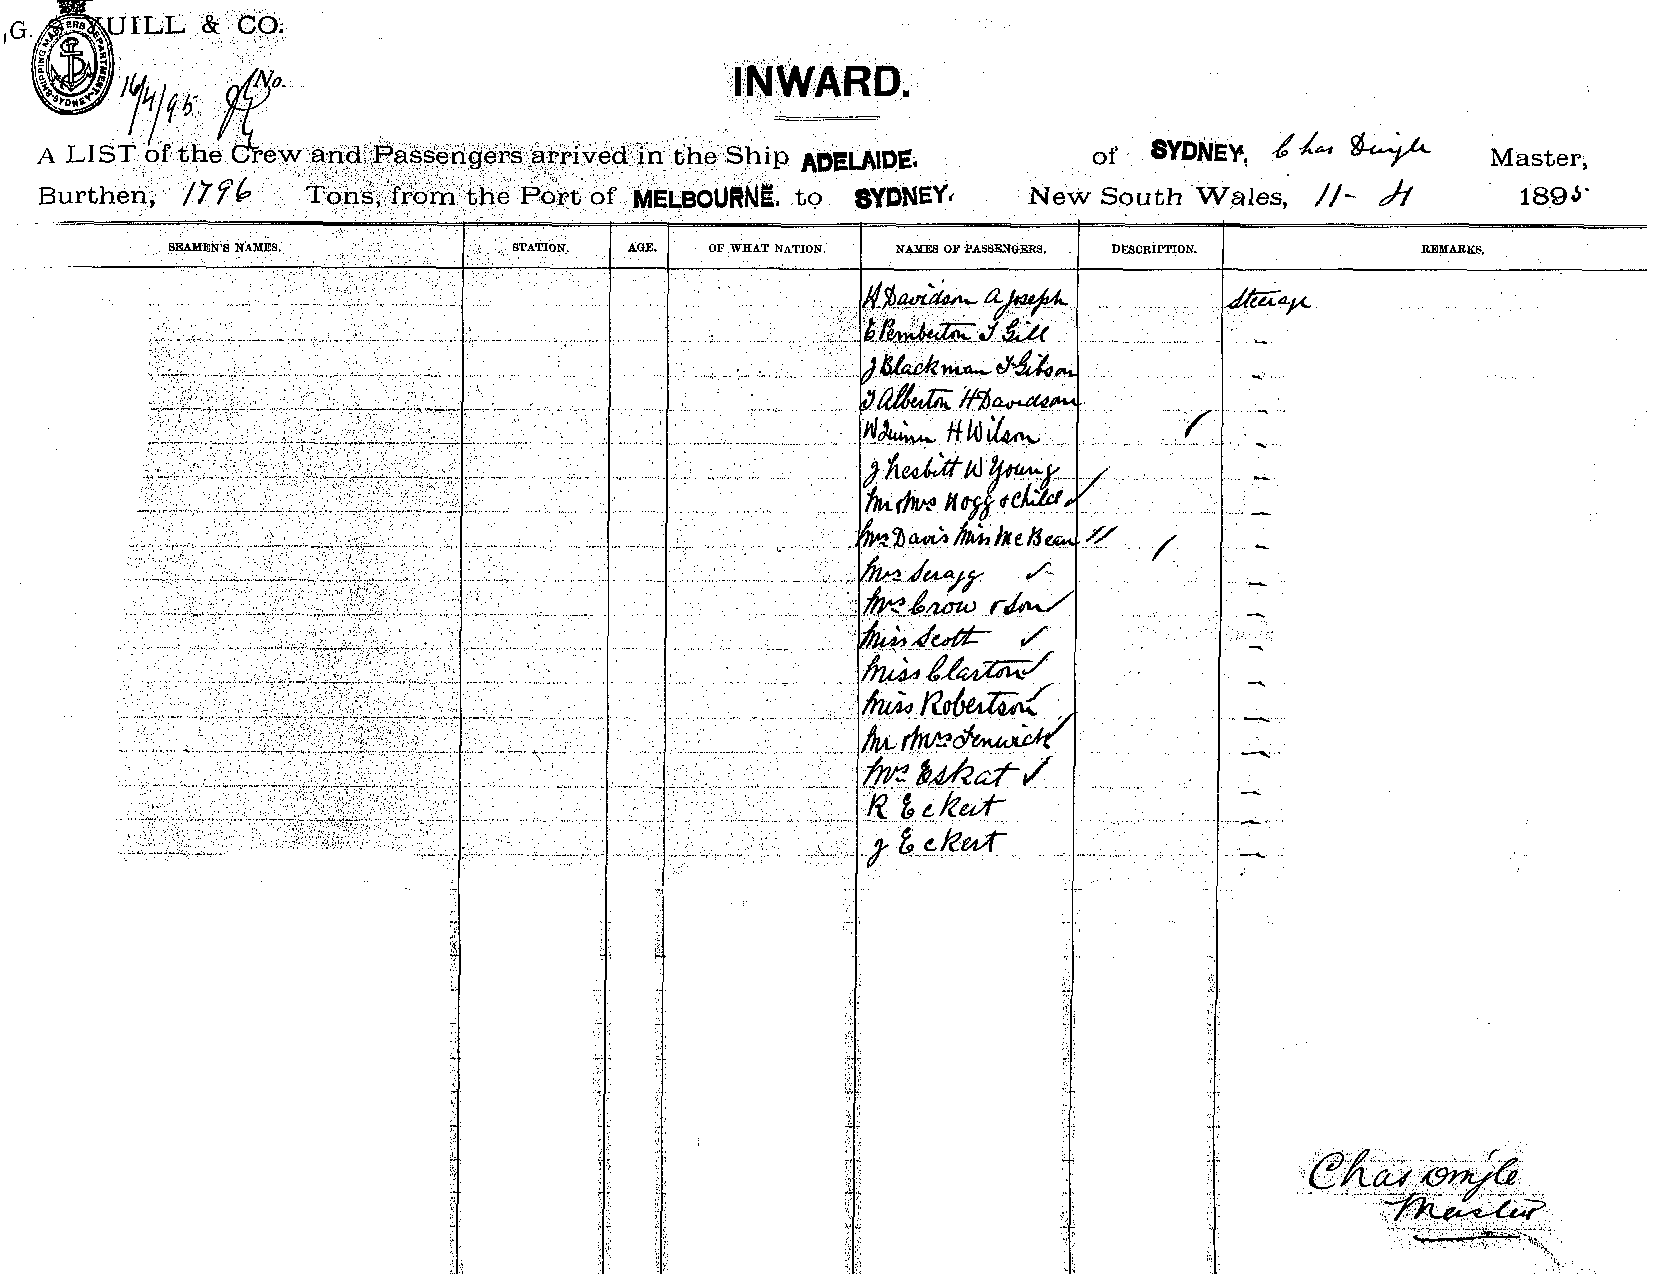 ,G. UILL & CO.
SHIPPING MASTERS DEPARTMENT SYDNEY
16/4/95 No.
INWARD.
A LIST of the Crew and Passengers arrived in the Ship ADELAIDE. of SYDNEY, Chas Dingle Master,
Burthen, 1796 Tons, from the Port of MELBOURNE. to SYDNEY. New South Wales, 11-4 1895
SEAMEN'S NAMES. STATION. AGE. OF WHAT NATION. NAMES OF PASSENGERS. DESCRIPTION. REMARKS.
H Davidson A Joseph Steerage
E Pemberton T Gill "
J Blackman T Gibson "
T Alberton H Davidson "
W Quinn H Wilson "
J Nesbitt W Young "
Mr & Mrs Hogg & child "
Mrs Davis Miss McBean "
Mrs Scragg "
Mrs Crow & Son "
Miss Scott "
Miss Clarton "
Miss Robertson "
Mr & Mrs Fenwick "
Mrs Eskat "
R Eckert "
J Eckert "
Chas Dingle
Master